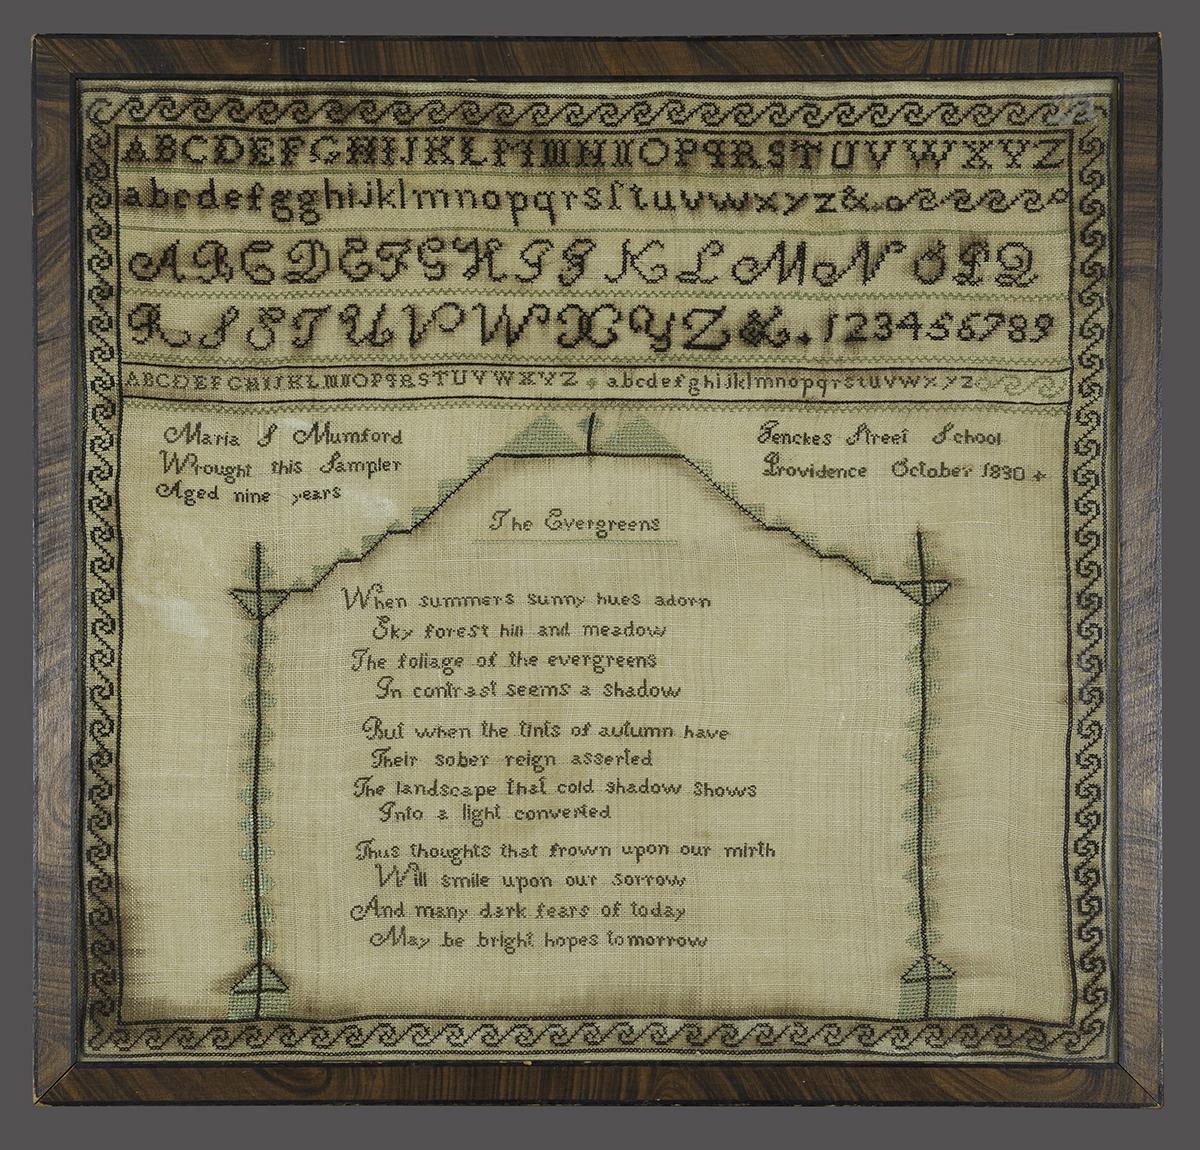 ABCDEFGHIJKLMMNNOPQRSTUVWXYZ
abcdefgghijklmnopqrsſtuvwxyz&
ABCDEFGHIJKLMNOPQ
RSSTUVWXYZ&.123456789
ABCDEFGHIJKLMNOPQRSTUVWXYZ abcdefghijklmnopqrstuvwxyz
Maria S Mumford
Wrought this Sampler
Aged nine years
Jenckes Street School
Providence October 1830
The Evergreens
When summers sunny hues adorn
Sky forest hill and meadow
The foliage of the evergreens
In contrast seems a shadow
But when the tints of autumn have
Their sober reign asserted
The landscape that cold shadow shows
Into a light converted
Thus thoughts that frown upon our mirth
Will smile upon our sorrow
And many dark fears of today
May be bright hopes tomorrow